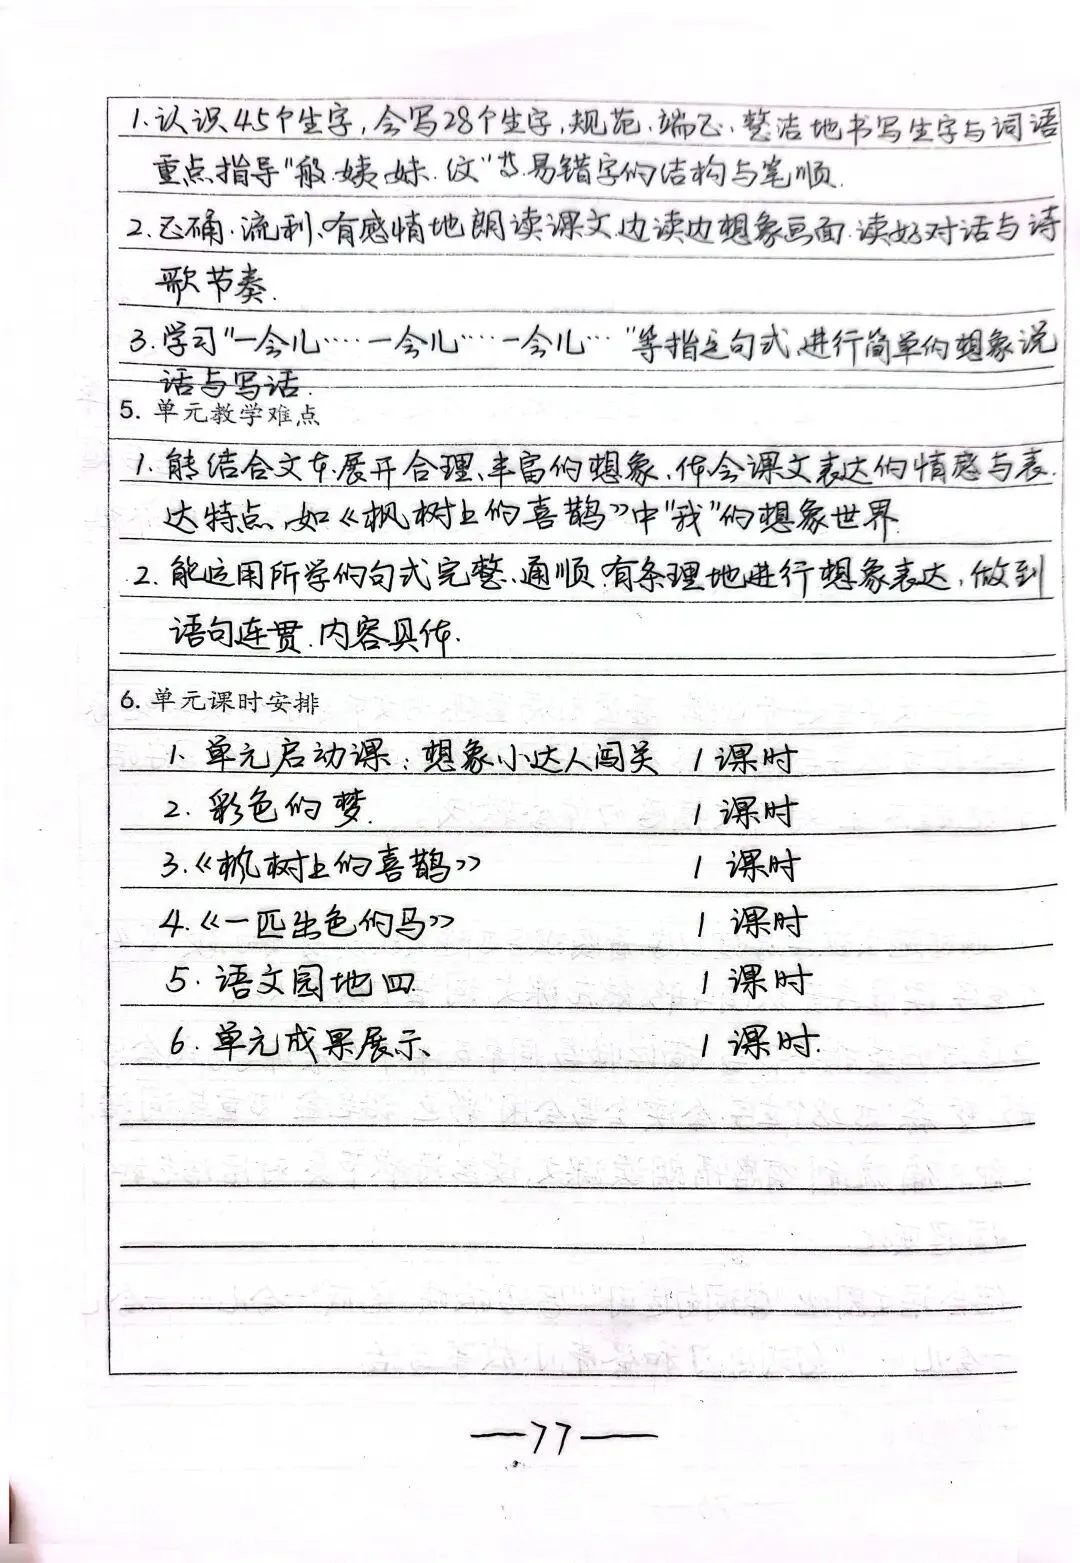 1.认识45个生字,会写28个生字,规范、端正、整洁地书写生字与词语
重点指导"般、姨、妹、纹"等易错字的结构与笔顺.
2.正确、流利、有感情地朗读课文,边读边想象画面、读好对话与诗
歌节奏.
3.学习"一会儿……一会儿……一会儿…"等指定句式,进行简单的想象说
话与写话.
5. 单元教学难点
1.能结合文本展开合理、丰富的想象、体会课文表达的情感与表
达特点,如《枫树上的喜鹊》中"我"的想象世界.
2.能运用所学的句式完整、通顺、有条理地进行想象表达,做到
语句连贯.内容具体.
6. 单元课时安排
1、单元启动课:想象小达人闯关 1课时
2.彩色的梦. 1课时
3.《枫树上的喜鹊》 1课时
4.《一匹出色的马》 1课时
5.语文园地四. 1课时
6.单元成果展示、 1课时.
—77—